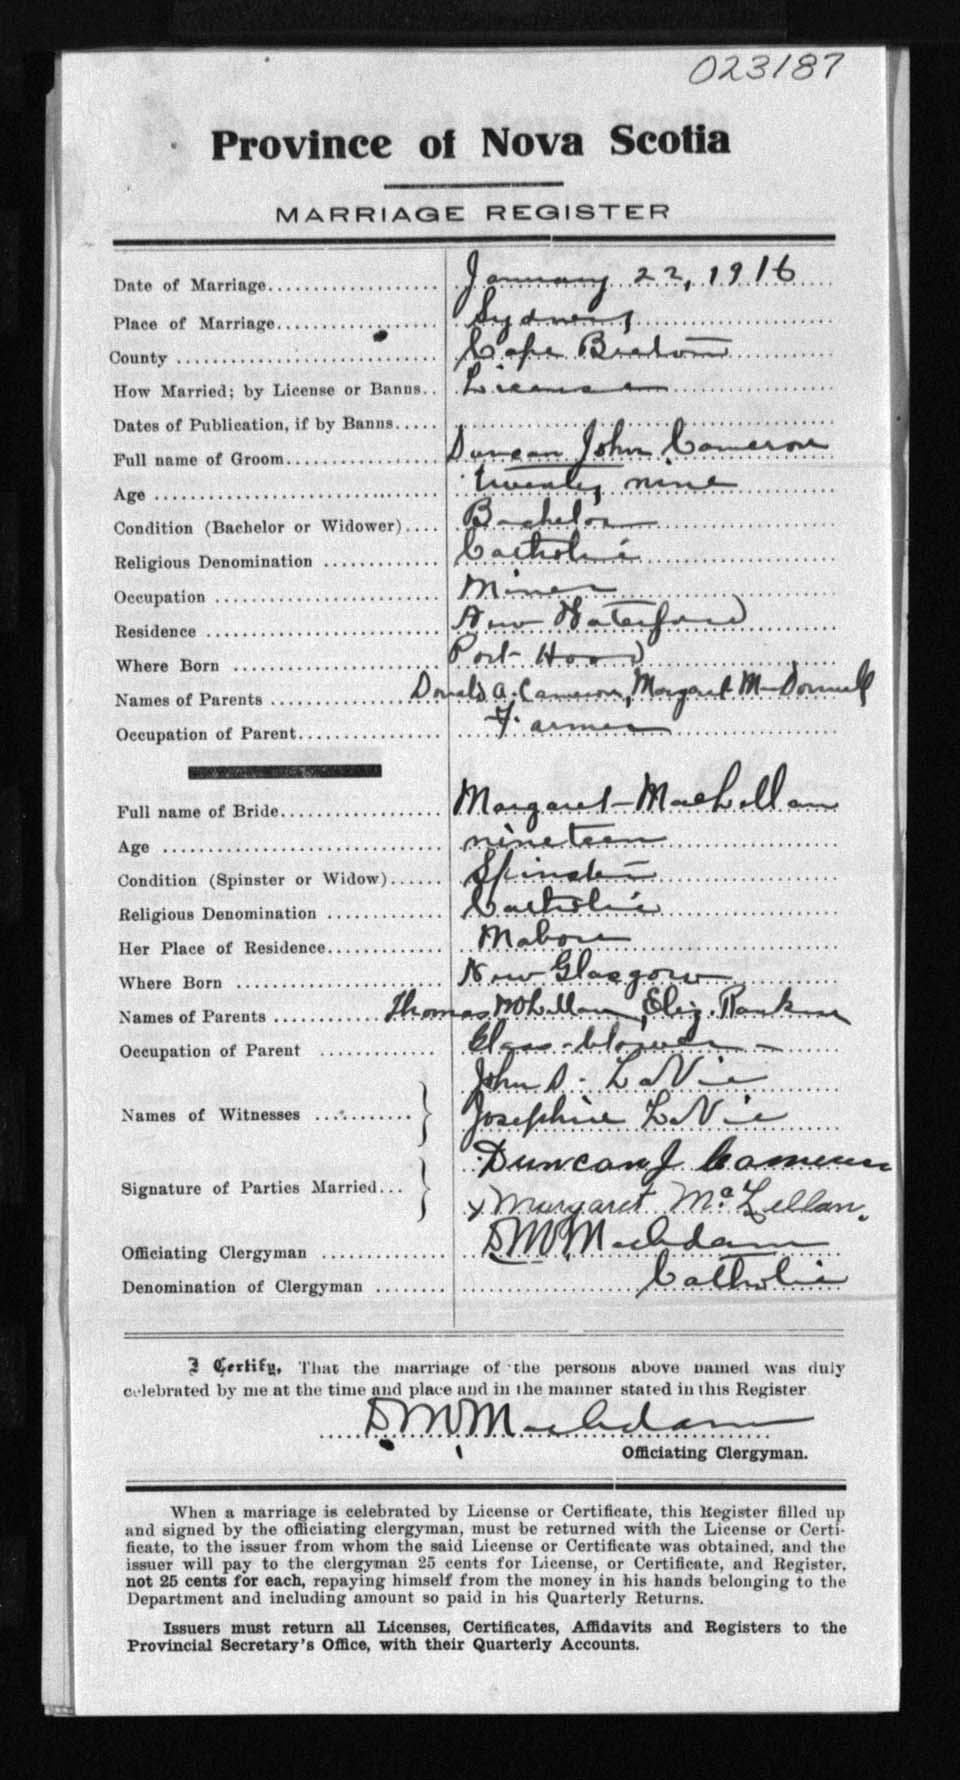 023187
Province of Nova Scotia
MARRIAGE REGISTER
Date of Marriage................... January 22, 1916
Place of Marriage.................. Sydney
County ............................ Cape Breton
How Married; by License or Banns.. License
Dates of Publication, if by Banns.....
Full name of Groom................. Duncan John Cameron
Age ............................... twenty nine
Condition (Bachelor or Widower).... Bachelor
Religious Denomination ............ Catholic
Occupation ........................ Miner
Residence ......................... New Waterford
Where Born ........................ Port Hood
Names of Parents .................. Donald A. Cameron, Margaret McDonnell
Occupation of Parent............... Farmer
Full name of Bride................. Margaret MacLellan
Age ............................... nineteen
Condition (Spinster or Widow)...... Spinster
Religious Denomination ............ Catholic
Her Place of Residence............. Mabou
Where Born ........................ New Glasgow
Names of Parents ............ Thomas McLellan, Eliz. Rankin
Occupation of Parent ............. Glass-blower
John D. LaVie
Names of Witnesses ...........
Josephine LaVie
Duncan J Cameron
Signature of Parties Married...
x Margaret McLellan.
Officiating Clergyman ............. D M MacAdam
Denomination of Clergyman ........ Catholic
I Certify, That the marriage of the persons above named was duly
celebrated by me at the time and place and in the manner stated in this Register
D M MacAdam
Officiating Clergyman.
When a marriage is celebrated by License or Certificate, this Register filled up
and signed by the officiating clergyman, must be returned with the License or Certi-
ficate, to the issuer from whom the said License or Certificate was obtained, and the
issuer will pay to the clergyman 25 cents for License, or Certificate, and Register,
not 25 cents for each, repaying himself from the money in his hands belonging to the
Department and including amount so paid in his Quarterly Returns.
Issuers must return all Licenses, Certificates, Affidavits and Registers to the
Provincial Secretary's Office, with their Quarterly Accounts.